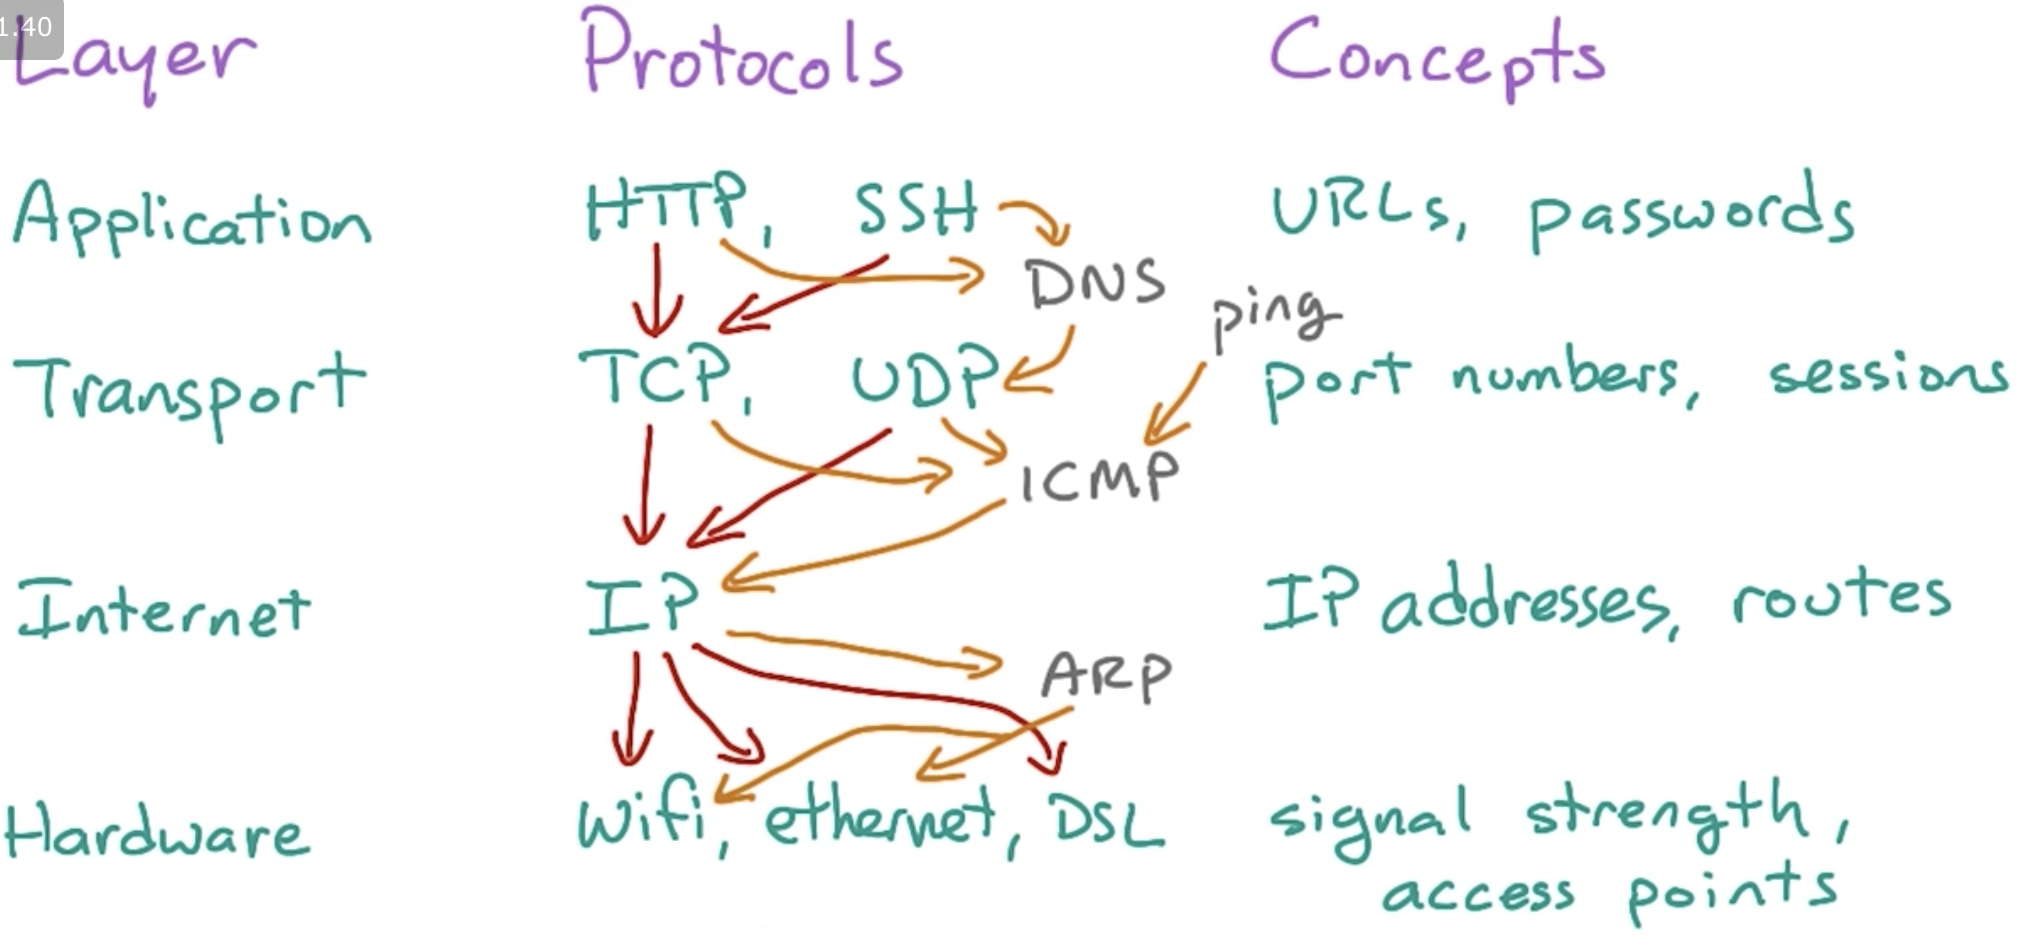 1.40
Layer Protocols Concepts
Application HTTP, SSH URLs, passwords
DNS
ping
Transport TCP, UDP port numbers, sessions
ICMP
Internet IP IP addresses, routes
ARP
Hardware Wifi, ethernet, DSL signal strength,
access points